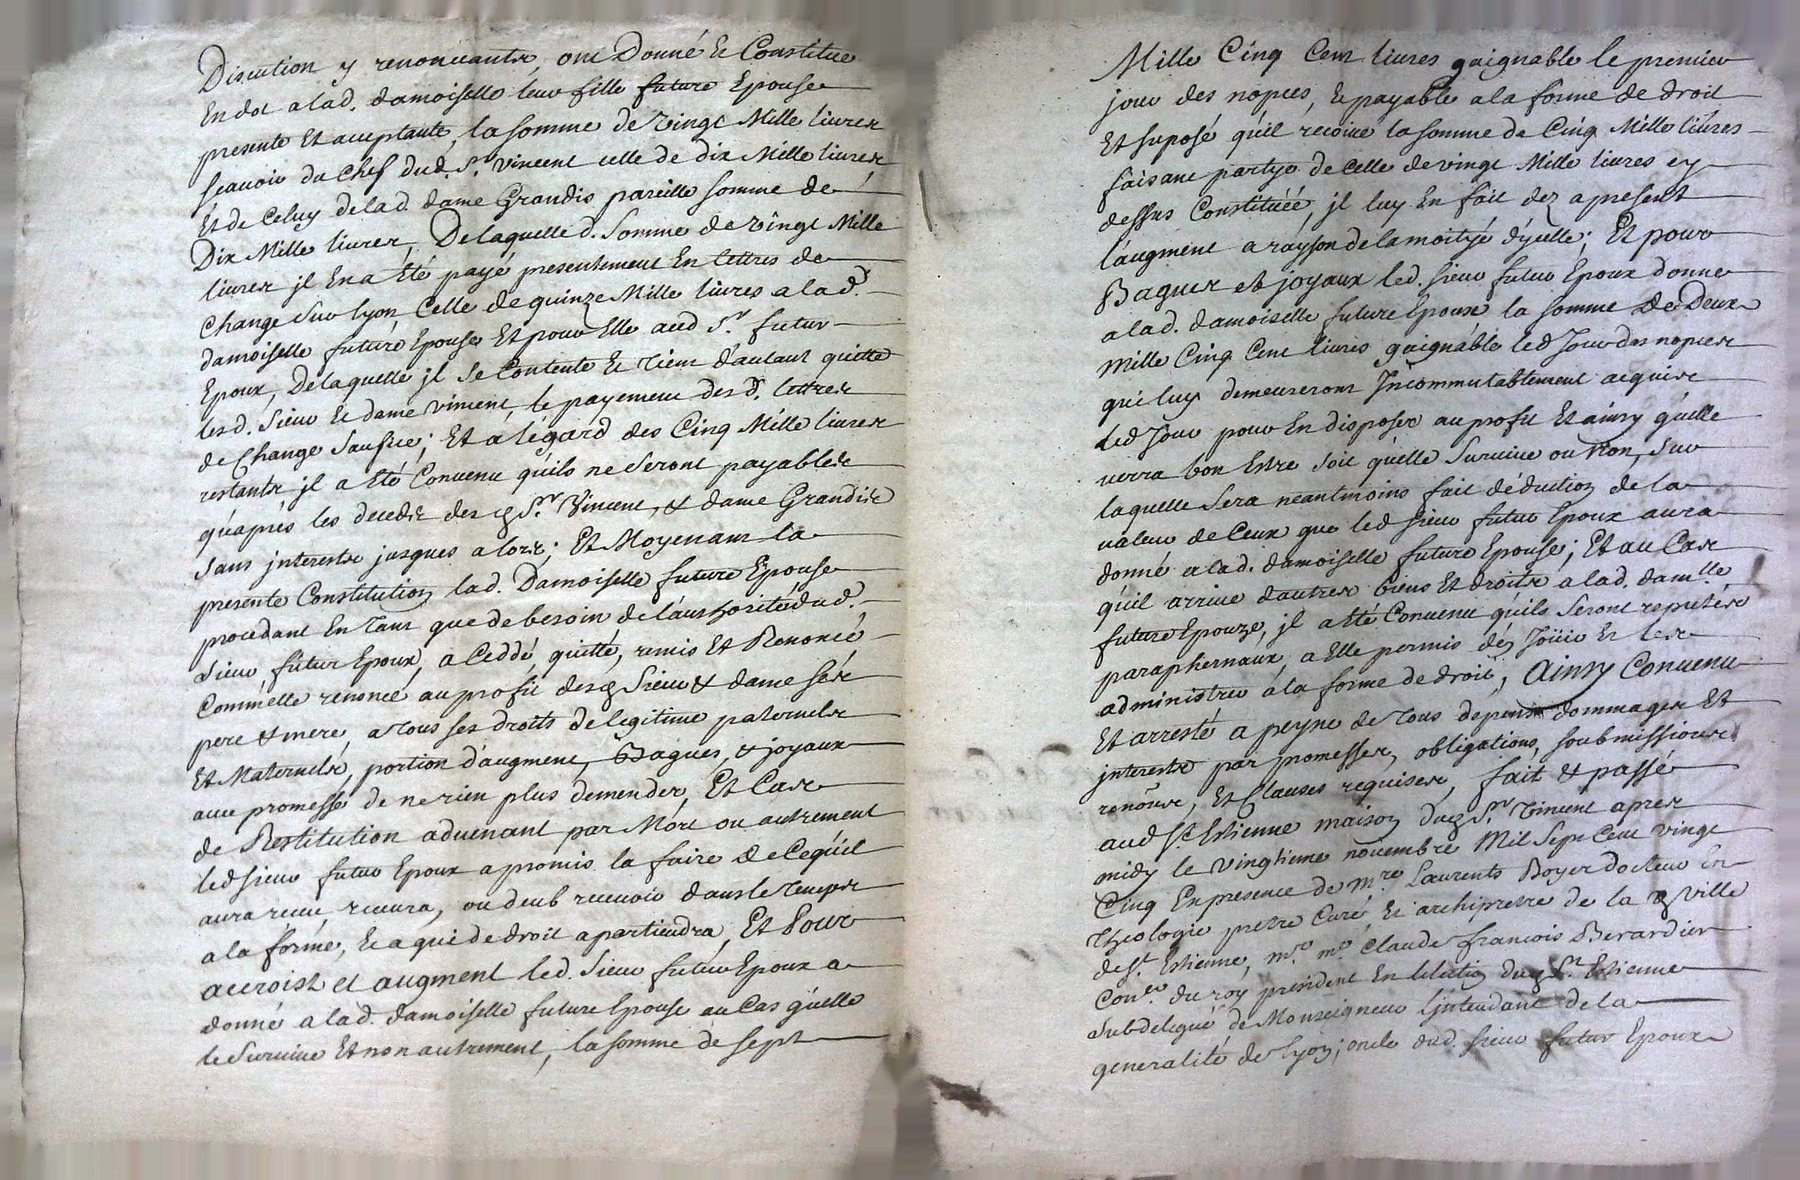 Discution y renonceants, ont Donné Et Constitue
En dot a lad. damoiselle leur fille future Epouse
presente Et aceptante, la somme de vingt Mille livres
scauoir du Chef dud. Sr. Vincent celle de dix Mille livres
Et de Celuy de lad. dame Grandis pareille somme de
Dix Mille livres, De laquelle d. Somme de vingt Mille
livres jl En a Eté payé presentement En lettres de
Change Sur lyon Celle de quinze Mille livres a lad.
damoiselle future Epouse Et pour Elle aud Sr. futur
Epoux, De laquelle jl Se Contente Et tient d'autant quitte
lesd. Sieur Et dame Vincent, le payement des d. lettres
de Change Sauf ; Et a légard des Cinq Mille livres
restants, jl a Eté Convenu quils ne Seront payables
qu'aprés les decedz des Sr. Vincent, & dame Grandis
Sans jnterests jusques a lors; Et Moyenant la
presente Constitution lad. Damoiselle future Epouse
procedant En tant que de besoin de l'authorité dud.
Sieur futur Epoux, a Ceddé, quitté, remis Et Renoncé
Comm'elle renonce au profit des Sieur & dame ses
pere & mere a tous ses droits de legitime paternels
Et Maternels, portion d'augment, Bagues, & joyaux
auec promesse de ne rien plus demender, Et Cas
de Restitution aduenant par Mort ou autrement
led sieur futur Epoux a promis la faire de Cequil
aura receu, receura, ou deub receuoir dans le temps
a la forme, Et a qui de droit apartiendra, Et Pour
accroist et augment led. Sieur futur Epoux a
donné a lad. damoiselle future Epouse au Cas qu'elle
le Suruiue Et non autrement, la somme de sept
Mille Cinq Cent liures gaignable le premier
jour des nopces, Et payable a la forme de droit
Et suposé qu'il recoiue la somme de Cinq Mille liures
faisant partye de Celle de vingt Mille liures cy
dessus Constituéé, jl luy En fait dez a present
l'augment a rayson de la moityé d'ycelle; Et pour
Bagues et joyaux led. sieur futur Epoux donne
a lad. damoiselle future Epouse la somme de Deux
mille Cinq Cent liures gaignable led Jour des nopces
qui luy demeureront Incommutablement acquis
led Jour pour En disposer au profit Et ainsy qu'elle
verra bon Estre Soit qu'elle Suruiue ou Non, Sur
laquelle Sera neantmoins fait déduction de la
valeur de Ceux que led sieur futur Epoux aura
donné a lad. damoiselle future Epouse; Et au Cas
qu'il arriue d'autres biens Et droits a lad. damlle.
future Epouze, jl a été Convenu quils Seront reputés
paraphernaux, a Elle permis den Joüir Et les
administrer a la forme de droit, Ainsy Convenu
Et arresté a peyne de tous depens dommages Et
jnterests par promesses, obligations, soubmissions
renons, Et Clauses requises, fait & passé
aud St. Estienne maison dud Sr. Vincent apres
midy le vingtieme nouembre Mil Sept Cent vingt
Cinq En presence de mre. Laurents Boyer docteur En
Theologie prestre Curé Et archiprestre de la Ville
de St. Estienne, mre. me. Claude francois Berardier
Coner. du roy president En lelection dud St. Estienne
Subdelegué de Monseigneur L'jntendant de la
generalité de lyon; oncle dud. sieur futur Epoux